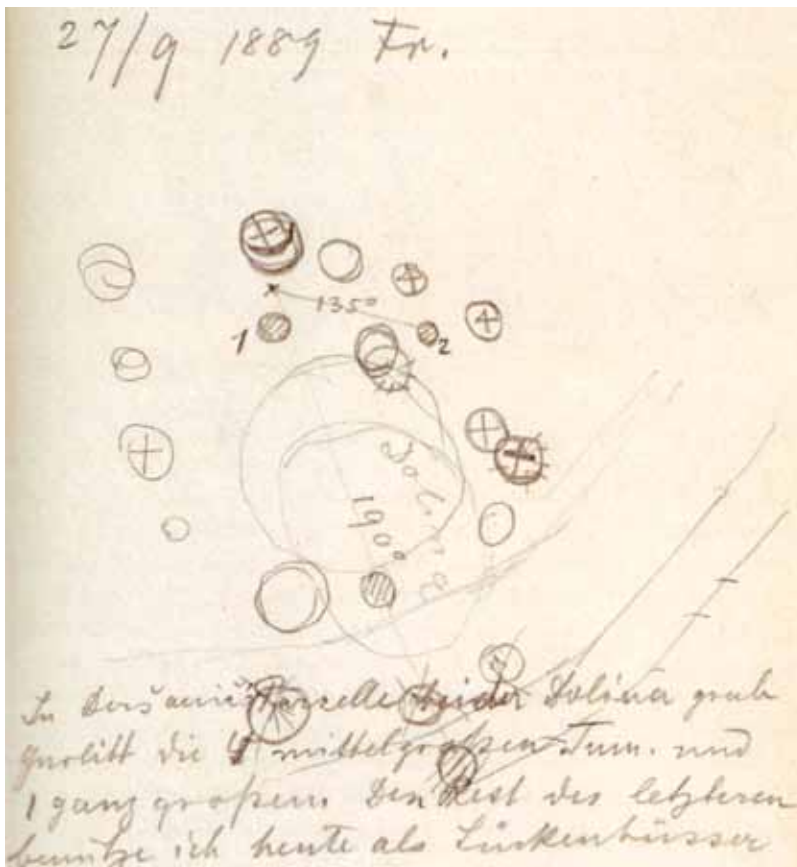 27/9 1889 Fr.
135°
1
2
Dolina
190°
In Parzelle bei der Dolina grub
die 4 mittelgroßen Tum. und
1 ganz großen. Den Rest des letzteren
benutze ich heute als Lückenbüsser